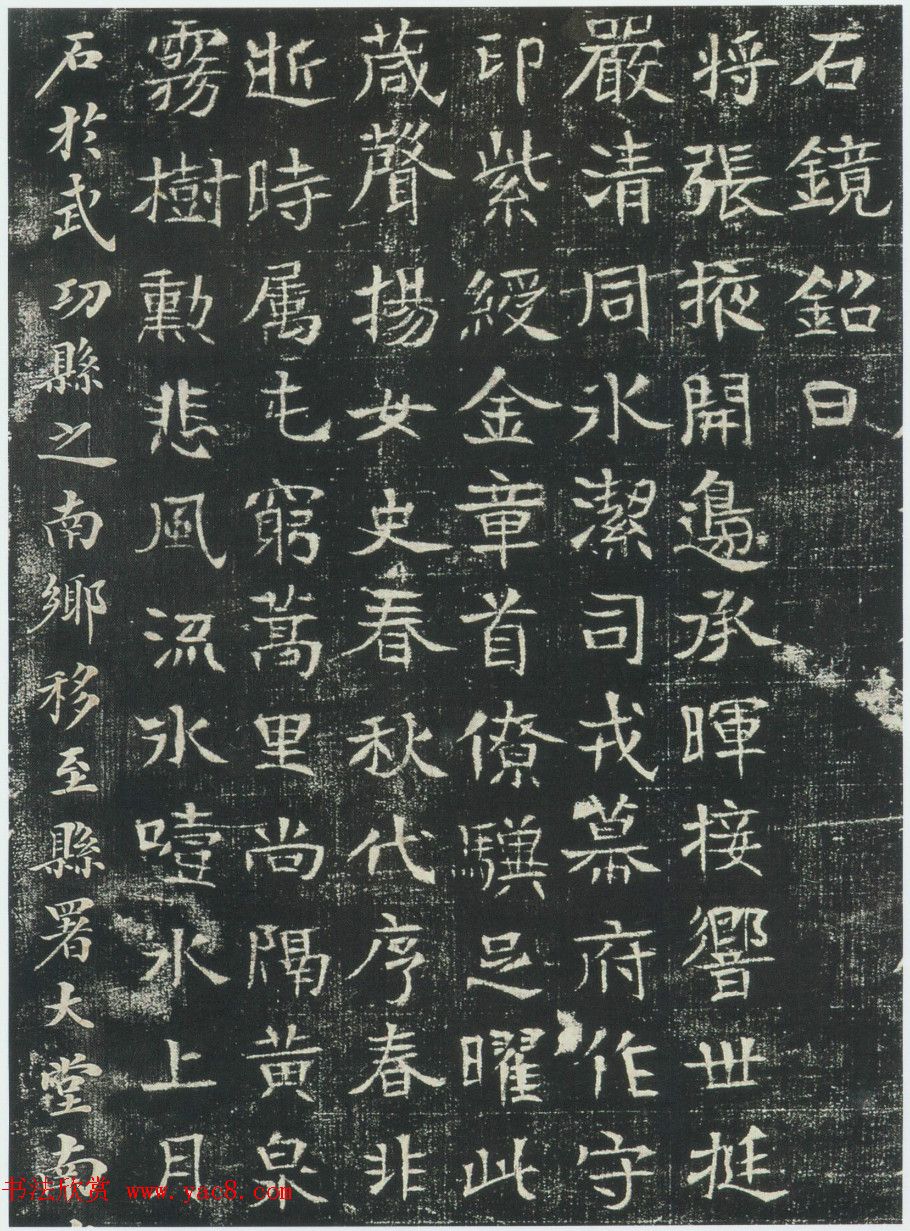 石鏡銘曰
將張掖開邊承暉接響世挺
嚴清同水潔司戎幕府作守
印紫綬金章首僚驥足曜此
葴聲揚女史春秋代序春非
逝時屬屯窮蒿里尚隔黃泉
霧樹勳悲風流水噎水上月
石於武功縣之南鄉移至縣署大堂南
书法欣赏 www.yac8.com